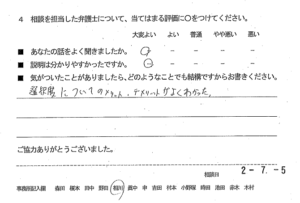 4 相談を担当した弁護士について、当てはまる評価に〇をつけてください。
大変よい よい 普通 やや悪い 悪い
■ あなたの話をよく聞きましたか。
■ 説明は分かりやすかったですか。
■ 気がついたことがありましたら、どのようなことでも結構ですからお書きください。
についてのメリット、デメリットがよくわかった。
ご協力ありがとうございました。
相談日 2-7.-5
事務所記入欄 森田 榎本 田中 野田 相川 真中 申 吉田 村本 小野塚 時田 池田 赤木 木村